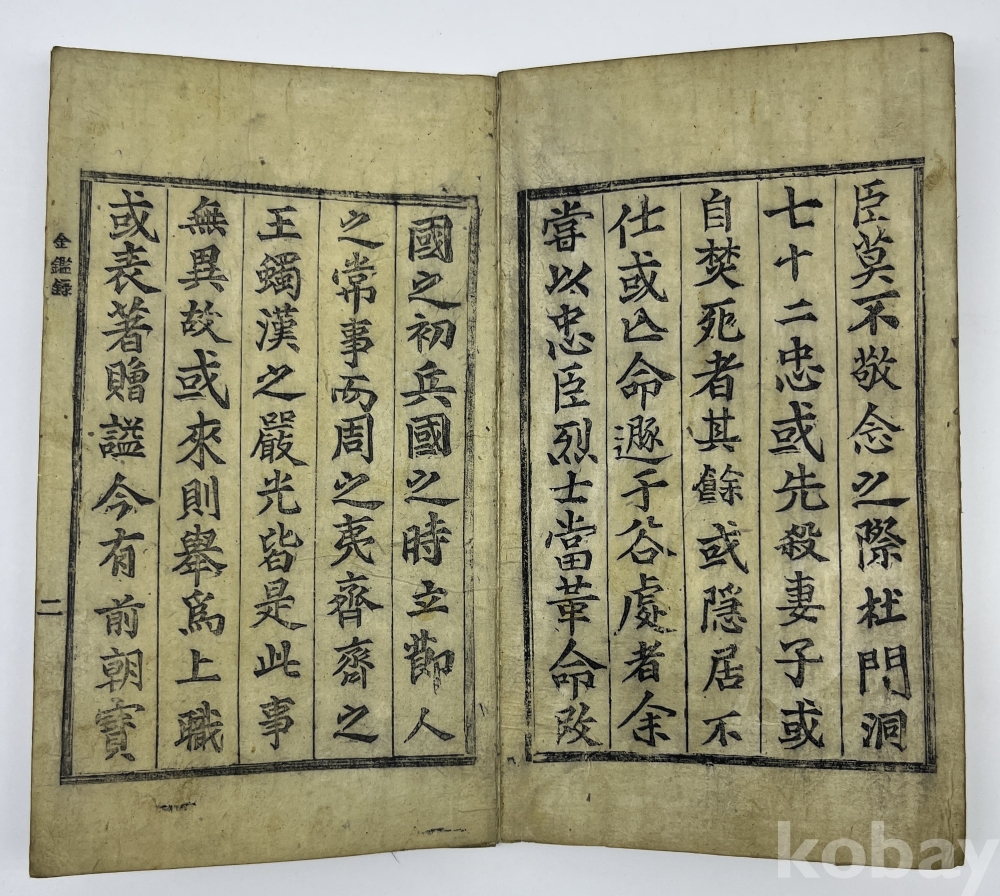 臣莫不敬念之際杜門洞
七十二忠或先殺妻子或
自焚死者其餘或隱居不
仕或亡命遯于谷處者余
嘗以忠臣烈士當革命改
國之初兵國之時立節人
之常事而周之夷齊齊之
王蠋漢之嚴光皆是此事
無異故或來則舉爲上職
或表著贈諡今有前朝寶
金鑑錄
二
kobay